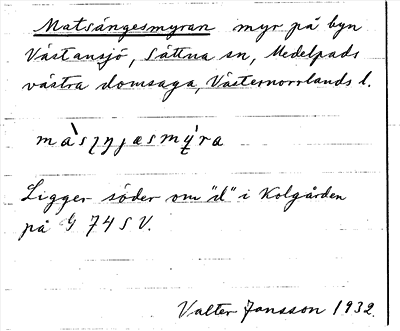 Matsängesmyran myr på byn
Västansjö, Sättna sn, Medelpads
västra domsaga, Västernorrlands l.
Ligger söder om "d" i Kolgården
på G 74 SV.
Valter Jansson 1932.